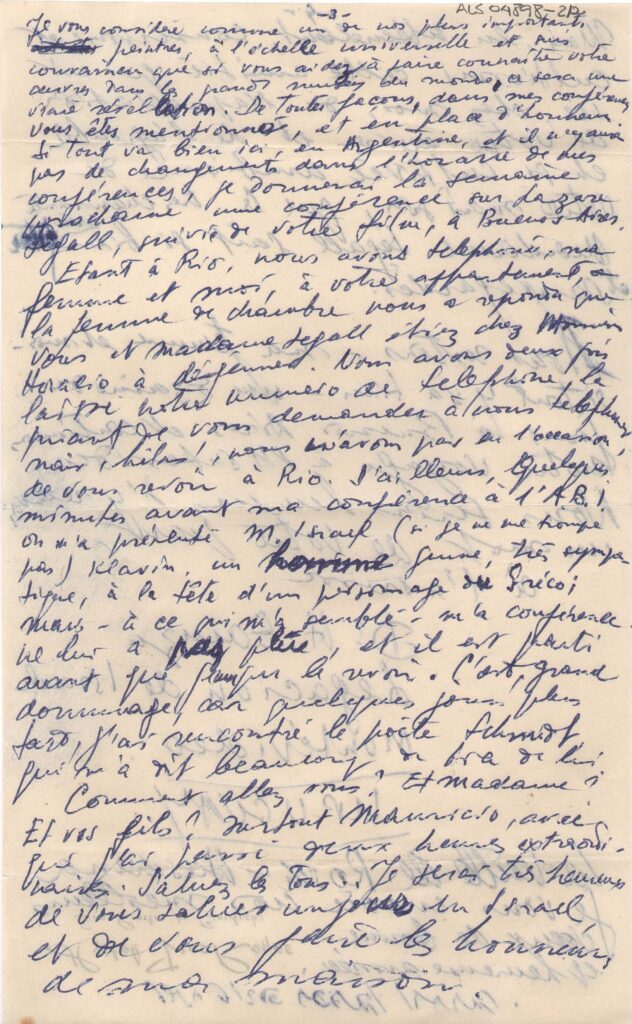 -3-
ALS 04898-2/2
Je vous considère comme un de nos plus importants
peintres, à l'échelle universelle et suis
convaincu que si vous aidez à faire connaître votre
œuvres dans les grands musées du monde, ce sera une
vraie révélation. De toutes façons, dans mes conférences
vous êtes mentionné, et en place d'honneur.
Si tout va bien ici, en Argentine, et il n'y aura
pas de changements dans l'horaire de mes
conférences, je donnerai la semaine
prochaine une conférence sur Lazare
Segall, suivie de votre film, à Buenos-Aires.
Etant à Rio, nous avons telephoné, ma
femme et moi, à votre appartement
la femme de chambre nous a repondu que
vous et madame Segall étiez chez Monsieur
Horacio à déjeuner. Nous avons deux fois
laissé notre numero de telephone, la
priant de vous demander à nous telephoner
mais, hélas!, nous n'avons pas eu l'occasion
de vous revoir à Rio. D'ailleurs, quelques
minutes avant ma conférence à l'A.B.I
on m'a présenté M. Israel (si je ne me trompe
pas) Klavin, un homme jeune, très sympa
tique, à la tête d'un personage du Gréco;
mais - à ce qui m'a semblé - m'a conférence
ne lui a pas plue, et il est parti
avant que je le revoir. C'est grand
dommage, car quelques jours plus
tard, j'ai rencontré le poète Schmidt
qui m'a dit beaucoup de bien de lui
Comment allez vous? Et madame?
Et vos fils? Surtout Mauricio, avec
qui j'ai passé deux heures extraordi-
naires. Saluez les tous. Je serai très heureux
de vous saluer un jour en Israel
et de vous faire les honneurs
de ma maison.